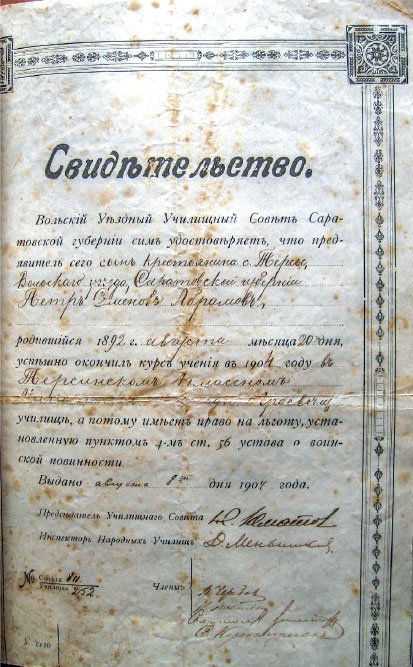 Свидѣтельство.
Вольскій Уѣздный Училищный Совѣтъ Сара-
товской губерніи симъ удостовѣряетъ, что предъ-
явитель сего сынъ крестьянина с. Терсы,
Вольскаго уѣзда, Саратовской губерніи
Петръ Абрамовъ,
родившійся 1892 г. августа мѣсяца 20 дня,
успѣшно окончилъ курсъ ученія въ 1904 году въ
Терсинскомъ классномъ
училищѣ, а потому имѣетъ право на льготу, уста-
новленную пунктомъ 4-мъ ст. 56 устава о воин-
ской повинности.
Выдано августа 8 дня 1904 года.
Предсѣдатель Училищнаго Совѣта
Инспекторъ Народныхъ Училищъ Д. Меньшиковъ
№ Совѣта
Училища 252.
Члены